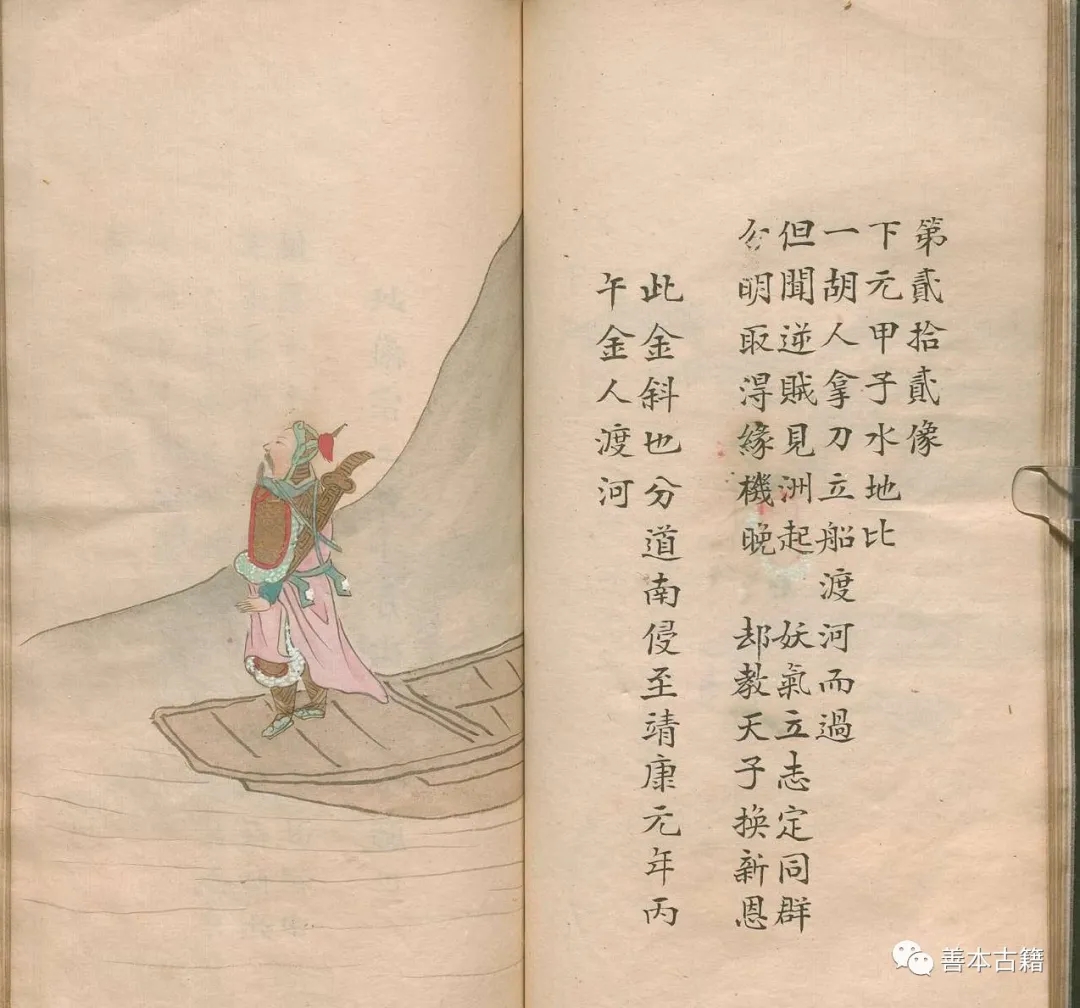 第貳拾貳像
下元甲子水地比
一胡人拿刀立船渡河而過
但聞逆賊見洲起 妖氣立志定同群
分明取淂緣機晚 却教天子換新恩
此金斜也分道南侵至靖康元年丙
午金人渡河
善本古籍